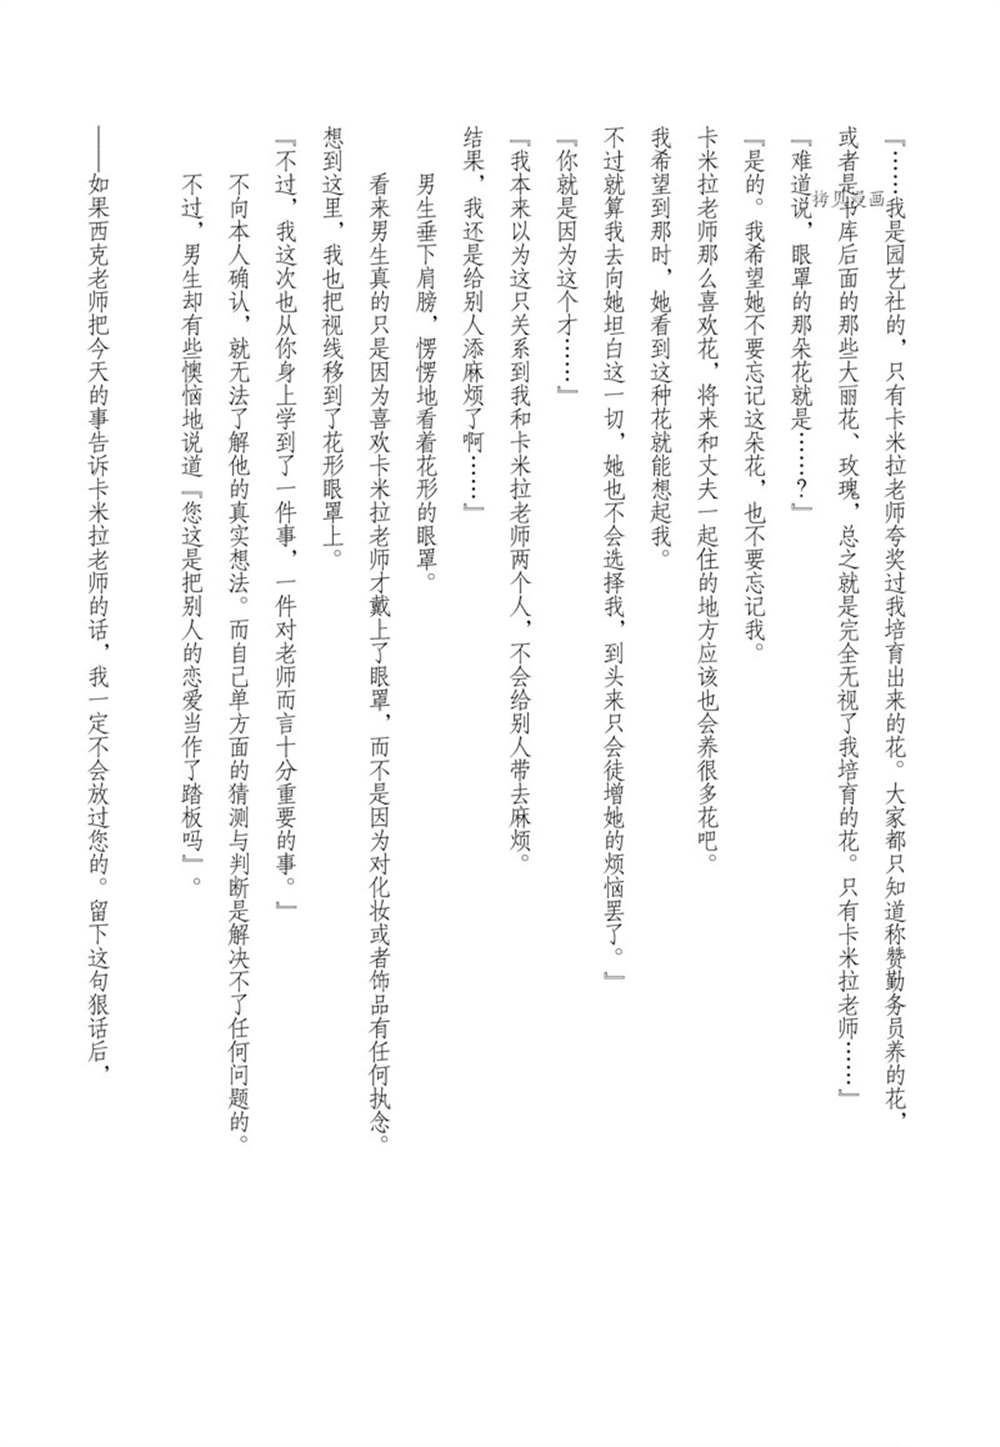 『……我是园艺社的，只有卡米拉老师夸奖过我培育出来的花。大家都只知道称赞勤务员养的花，
或者是书库后面的那些大丽花、玫瑰，总之就是完全无视了我培育的花。只有卡米拉老师……』
『难道说，眼罩的那朵花就是……？』
『是的。我希望她不要忘记这朵花，也不要忘记我。
卡米拉老师那么喜欢花，将来和丈夫一起住的地方应该也会养很多花吧。
我希望到那时，她看到这种花就能想起我。
不过就算我去向她坦白这一切，她也不会选择我，到头来只会徒增她的烦恼罢了。』
『你就是因为这个才……』
『我本来以为这只关系到我和卡米拉老师两个人，不会给别人带去麻烦。
结果，我还是给别人添麻烦了啊……』
男生垂下肩膀，愣愣地看着花形的眼罩。
看来男生真的只是因为喜欢卡米拉老师才戴上了眼罩，而不是因为对化妆或者饰品有任何执念。
想到这里，我也把视线移到了花形眼罩上。
『不过，我这次也从你身上学到了一件事，一件对老师而言十分重要的事。』
不向本人确认，就无法了解他的真实想法。而自己单方面的猜测与判断是解决不了任何问题的。
不过，男生却有些懊恼地说道『您这是把别人的恋爱当作了踏板吗』。
——如果西克老师把今天的事告诉卡米拉老师的话，我一定不会放过您的。留下这句狠话后，
拷贝漫画